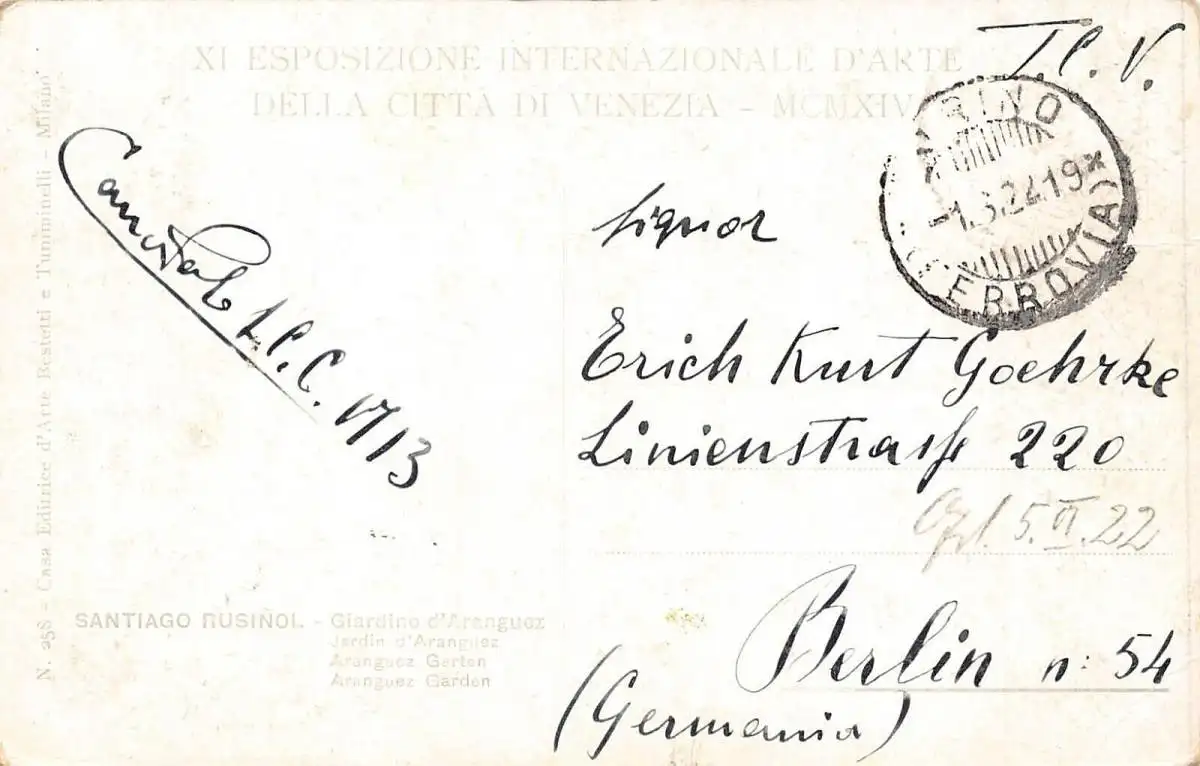 XI ESPOSIZIONE INTERNAZIONALE D'ARTE
DELLA CITTÀ DI VENEZIA - MCMXIV
T.C.V.
(FERROVIA)
N. 258 - Casa Editrice d'Arte Bestetti e Tumminelli - Milano
17/3
Signor
Erich Kurt Goehrke
Linienstrasse 220
5.VI.22
Berlin n: 54
(Germania)
SANTIAGO RUSIÑOL. - Giardino d'Aranguez
Jardin d'Aranguez
Aranguez Garten
Aranguez Garden